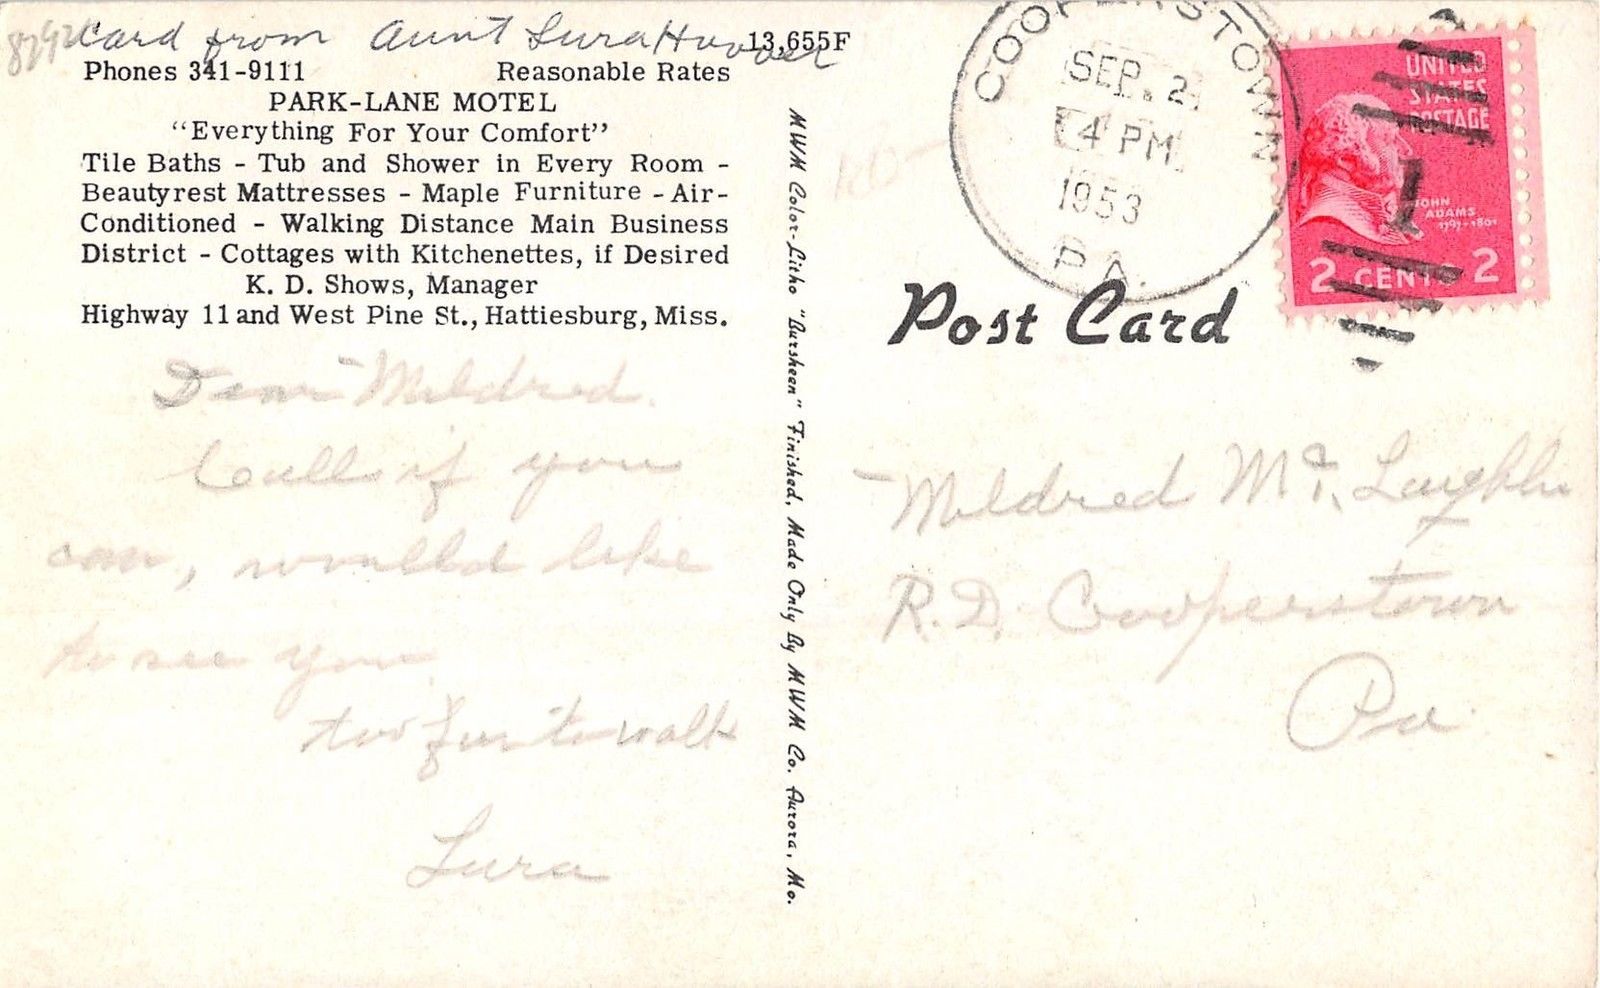 Card from Aunt Lura Hoover
13,655F
Phones 341-9111 Reasonable Rates
PARK-LANE MOTEL
"Everything For Your Comfort"
Tile Baths - Tub and Shower in Every Room -
Beautyrest Mattresses - Maple Furniture - Air-
Conditioned - Walking Distance Main Business
District - Cottages with Kitchenettes, if Desired
K. D. Shows, Manager
Highway 11 and West Pine St., Hattiesburg, Miss.
Dear Mildred.
Call if you
can, woulld like
to see you
too fur to walk
Lura
MWM Color-Litho "Bursheen" Finished, Made Only By MWM Co. Aurora, Mo.
COOPERSTOWN
SEP. 2
4 PM
1953
PA.
UNITED
STATES
POSTAGE
JOHN
ADAMS
1797-1801
2 CENTS 2
Post Card
Mildred Mc. Laughlin
R.D. Cooperstown
Pa.